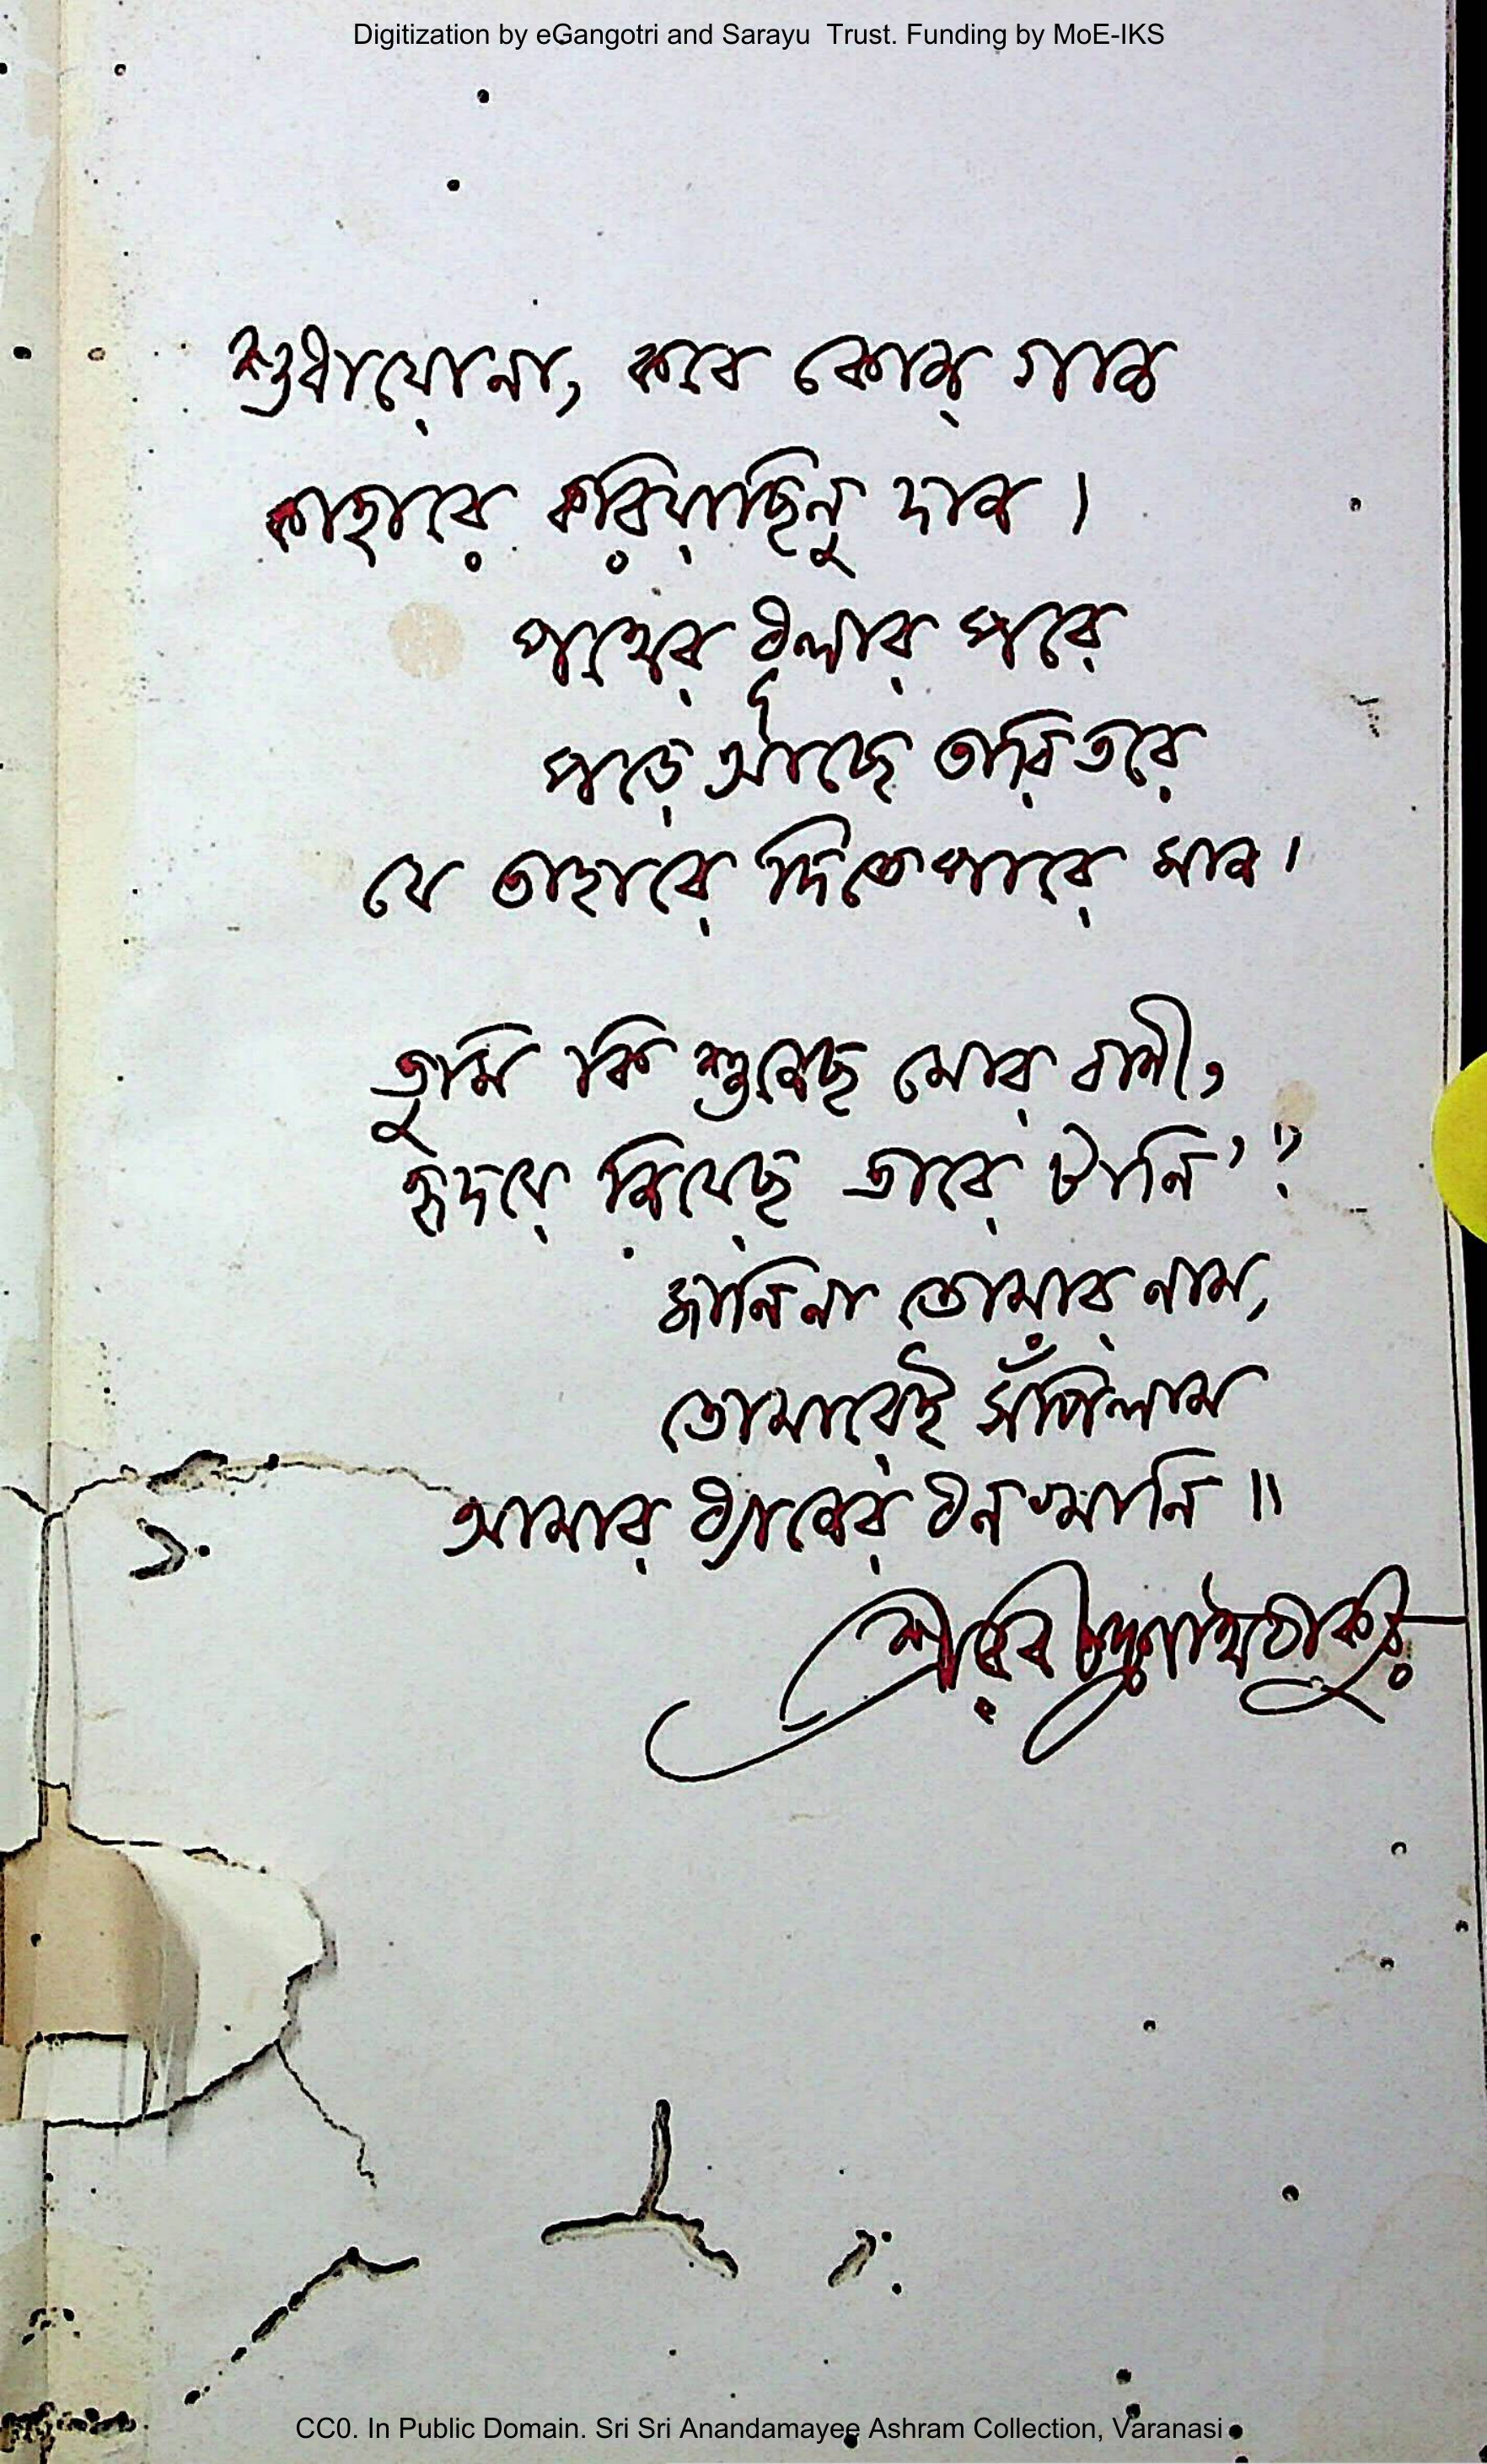 Digitization by eGangotri and Sarayu Trust. Funding by MoE-IKS
শুধায়োনা, কবে কোন্ গান
কাহারে করিয়াছিনু দান।
পথের ধূলার পরে
পড়ে আছে তারি তরে
যে তাহারে দিতে পারে মান।
তুমি কি শুনেছ মোর বাণী,
হৃদয়ে নিয়েছ তারে টানি'?
জানিনা তোমার নাম,
তোমারেই সঁপিলাম
আমার ধ্যানের ধনখানি॥
শ্রীরবীন্দ্রনাথ ঠাকুর
CC0. In Public Domain. Sri Sri Anandamayee Ashram Collection, Varanasi